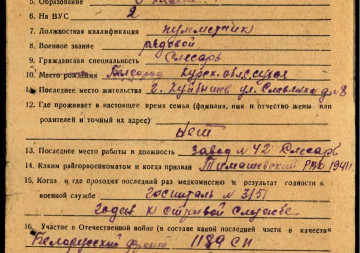 5. Образование
6. На ВУС 2
7. Должностная квалификация пулеметчик
8. Военное звание рядовой
9. Гражданская специальность Слесарь
10. Место рождения Белгород Курск. область
11. Последнее место жительства г. Куйбышев ул. д. 8
12. Где проживает в настоящее время семья (фамилия, имя и отчество жены или
родителей и точный их адрес)
нет
13. Последнее место работы и должность завод № 42 Слесарь
14. Каким райгорвоенкоматом и когда призван Тимашевский РВК 1941 г
15. Когда и где проходил последний раз медкомиссию и результат годности к
военной службе госпиталь № 3151
годен к строевой службе
16. Участие в Отечественной войне (в составе какой последней части в качестве
Белорусский фронт 1189 СП